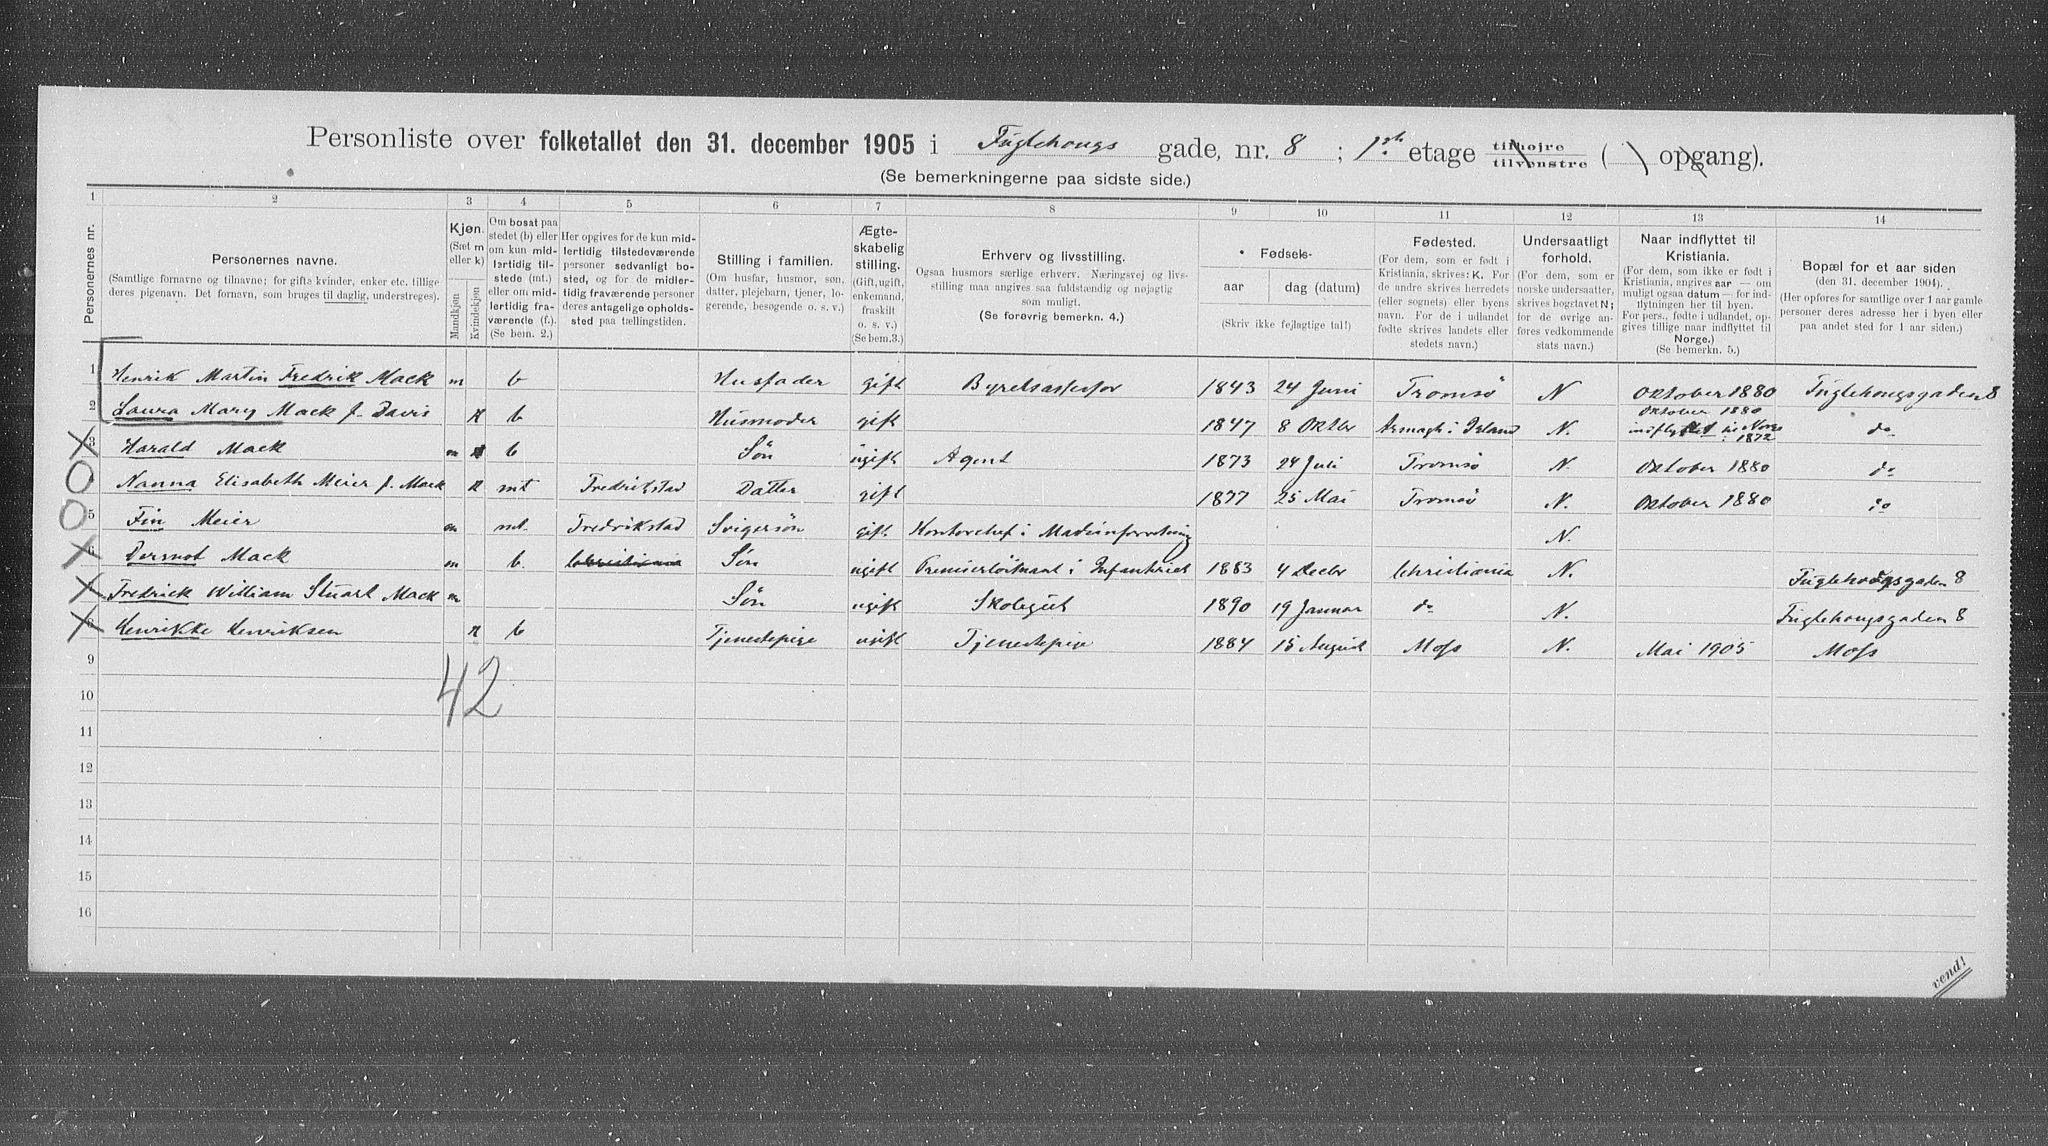 Personliste over folketallet den 31. december 1905 i Fuglehougs gade, nr. 8 ; 1ste etage tilhøjre tilvenstre ( ) opgang).
(Se bemerkningerne paa sidste side.)
1 2 3 4 5 6 7 8 9 10 11 12 13 14
Personernes nr.
Personernes navne.
(Samtlige fornavne og tilnavne; for gifte kvinder, enker etc. tillige deres pigenavn. Det fornavn, som bruges til daglig, understreges).
Kjøn.
(Sæt m eller k)
Mandkjøn
Kvindekjøn
Om bosat paa stedet (b) eller om kun midlertidig tilstede (mt.) eller om midlertidig fraværende (f.). (Se bem. 2.)
Her opgives for de kun midlertidig tilstedeværende personer sedvanligt bosted, og for de midlertidig fraværende personer deres antagelige opholdssted paa tællingstiden.
Stilling i familien.
(Om husfar, husmor, søn, datter, plejebarn, tjener, logerende, besøgende o. s. v.)
Ægteskabelig stilling.
(Gift, ugift, enkemand, fraskilt o. s. v.) (Se bem.3.)
Erhverv og livsstilling.
Ogsaa husmors særlige erhverv. Næringsvej og livsstilling maa angives saa fuldstændig og nøjagtig som muligt.
(Se forøvrig bemerkn. 4.)
Fødsels-
aar dag (datum)
(Skriv ikke fejlagtige tal!)
Fødested.
(For dem, som er født i Kristiania, skrives: K. For de andre skrives herredets (eller sognets) eller byens navn. For de i udlandet fødte skrives landets eller stedets navn.)
Undersaatligt forhold.
(For dem, som er norske undersaatter, skrives bogstavet N; for de øvrige anføres vedkommende stats navn.)
Naar indflyttet til Kristiania.
(For dem, som ikke er født i Kristiania, angives aar — om muligt ogsaa datum — for indflytningen her til byen. For pers., fødte i udlandet, opgives tillige naar indflyttet til Norge.)
(Se bemerkn. 5.)
Bopæl for et aar siden
(den 31. december 1904).
(Her opføres for samtlige over 1 aar gamle personer deres adresse her i byen eller paa andet sted for 1 aar siden.)
1 Henrik Martin Fredrik Mack m b Husfader gift Byretsassessor 1843 24 Juni Tromsø N Oktober 1880 Fuglehougsgaden 8
2 Laura Mary Mack f. Davis k b Husmoder gift 1847 8 Oktbr Armagh i Irland N. Oktober 1880 indflyttet i Norge i 1872 do
3 Harald Mack m b Søn ugift Agent 1873 24 Juli Tromsø N. Oktober 1880 do
Nanna Elisabeth Meier f. Mack k mt Fredrikstad Datter gift 1877 25 Mai Tromsø N. Oktober 1880 do
5 Fin Meier m mt. Fredrikstad Svigersøn gift Kontorchef i N.
6 Dermot Mack m b. Christiania Søn ugift Premierløitnant i Infanteriet 1883 4 Decbr Christiania N. Fuglehougsgaden 8
Fredrick William Stuart Mack m Søn ugift Skolegut 1890 19 Januar do N. Fuglehougsgaden 8
8 Henrikke Henriksen k b Tjenestepige ugift Tjenestepige 1884 15 August Moss N. Mai 1905 Moss
9
42
10
11
12
13
14
15
16
vend!